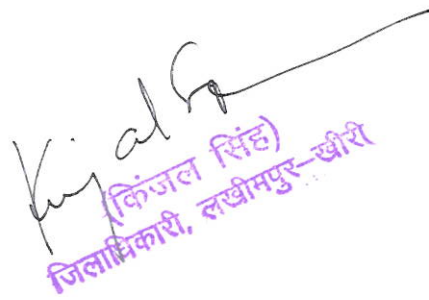 Kinjal Singh
(किंजल सिंह)
जिलाधिकारी, लखीमपुर-खीरी